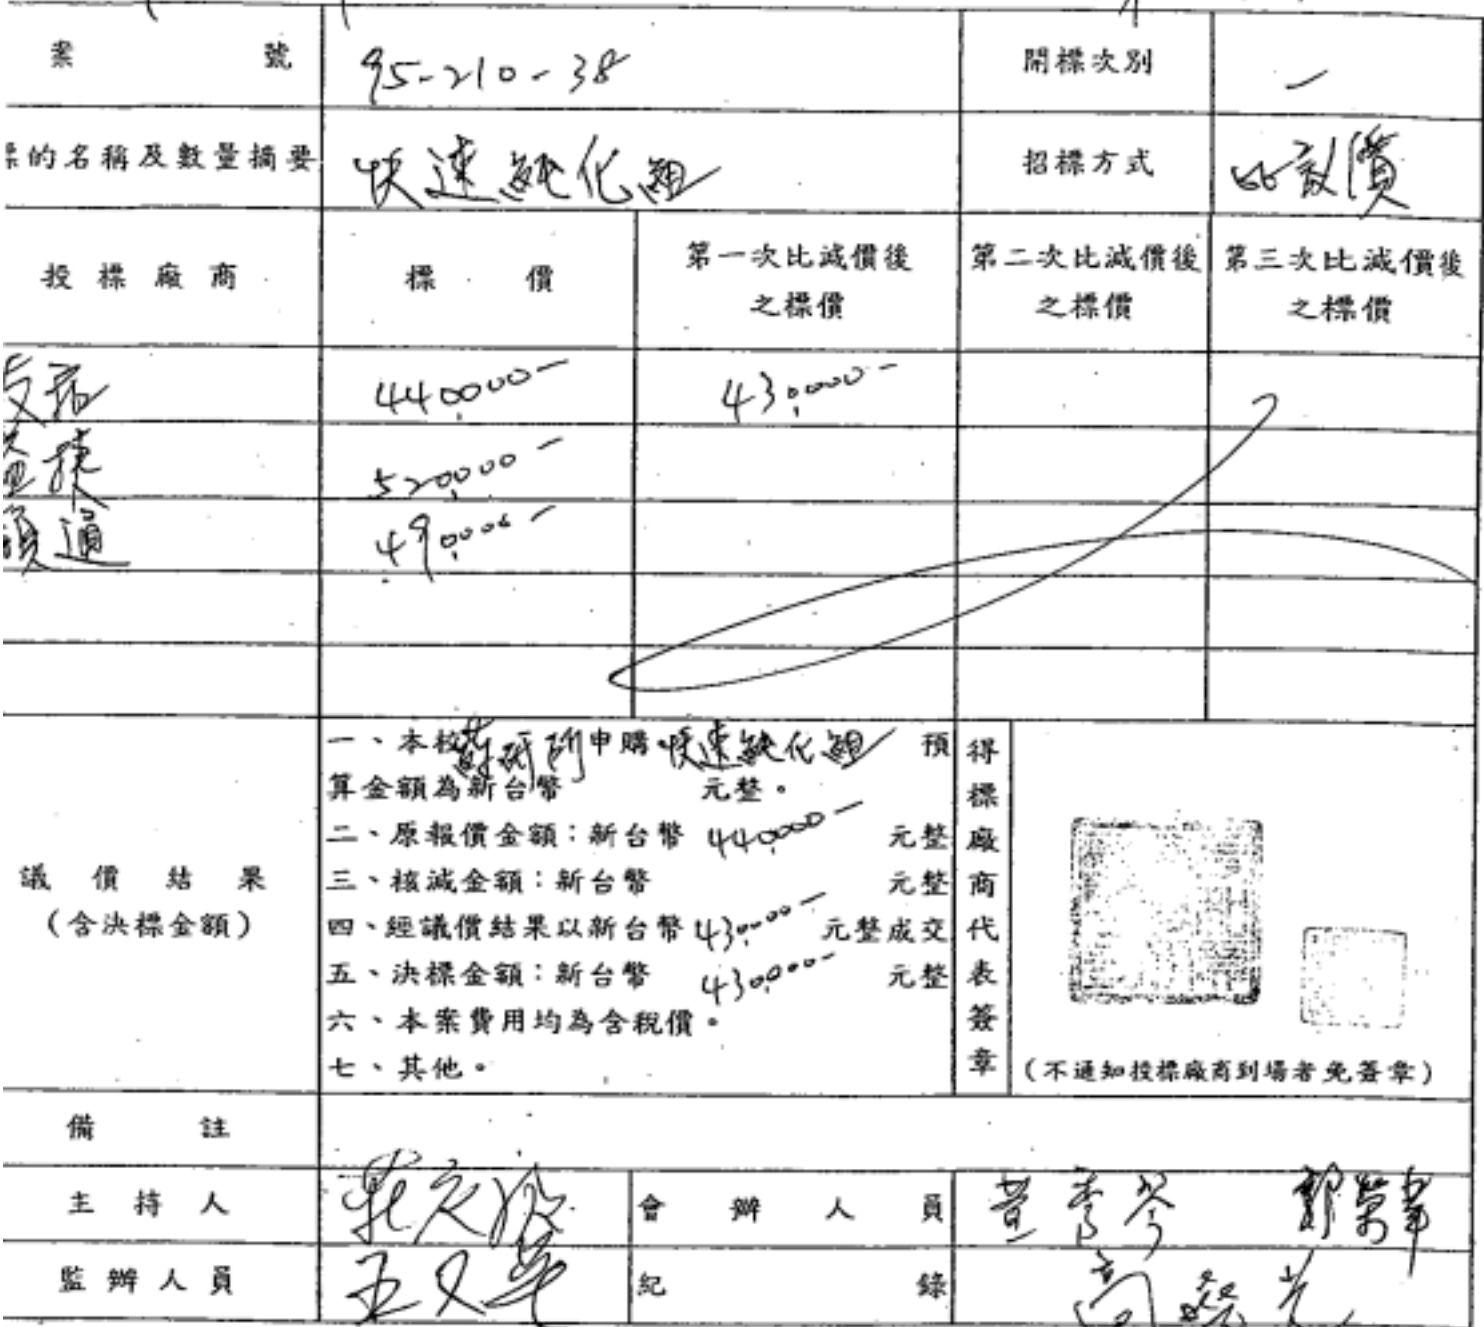 案號 95-210-38 開標次別 一
的名稱及數量摘要 快速純化組 招標方式 比敌價
投標廠商 標價 第一次比減價後之標價 第二次比減價後之標價 第三次比減價後之標價
440,000- 430,000-
捷 520,000-
通 490,000-
議價結果
(含決標金額)
一、本校 申購 快速純化組 預
算金額為新台幣 元整。
二、原報價金額：新台幣 440,000- 元整
三、核減金額：新台幣 元整
四、經議價結果以新台幣 430,000- 元整成交
五、決標金額：新台幣 430,000- 元整
六、本案費用均為含稅價。
七、其他。
得標廠商代表簽章
(不通知投標廠商到場者免簽章)
備註
主持人 會辦人員
監辦人員 紀錄